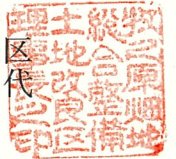 牧之原畑地
総合整備
土地改良区
理事長之印
区代